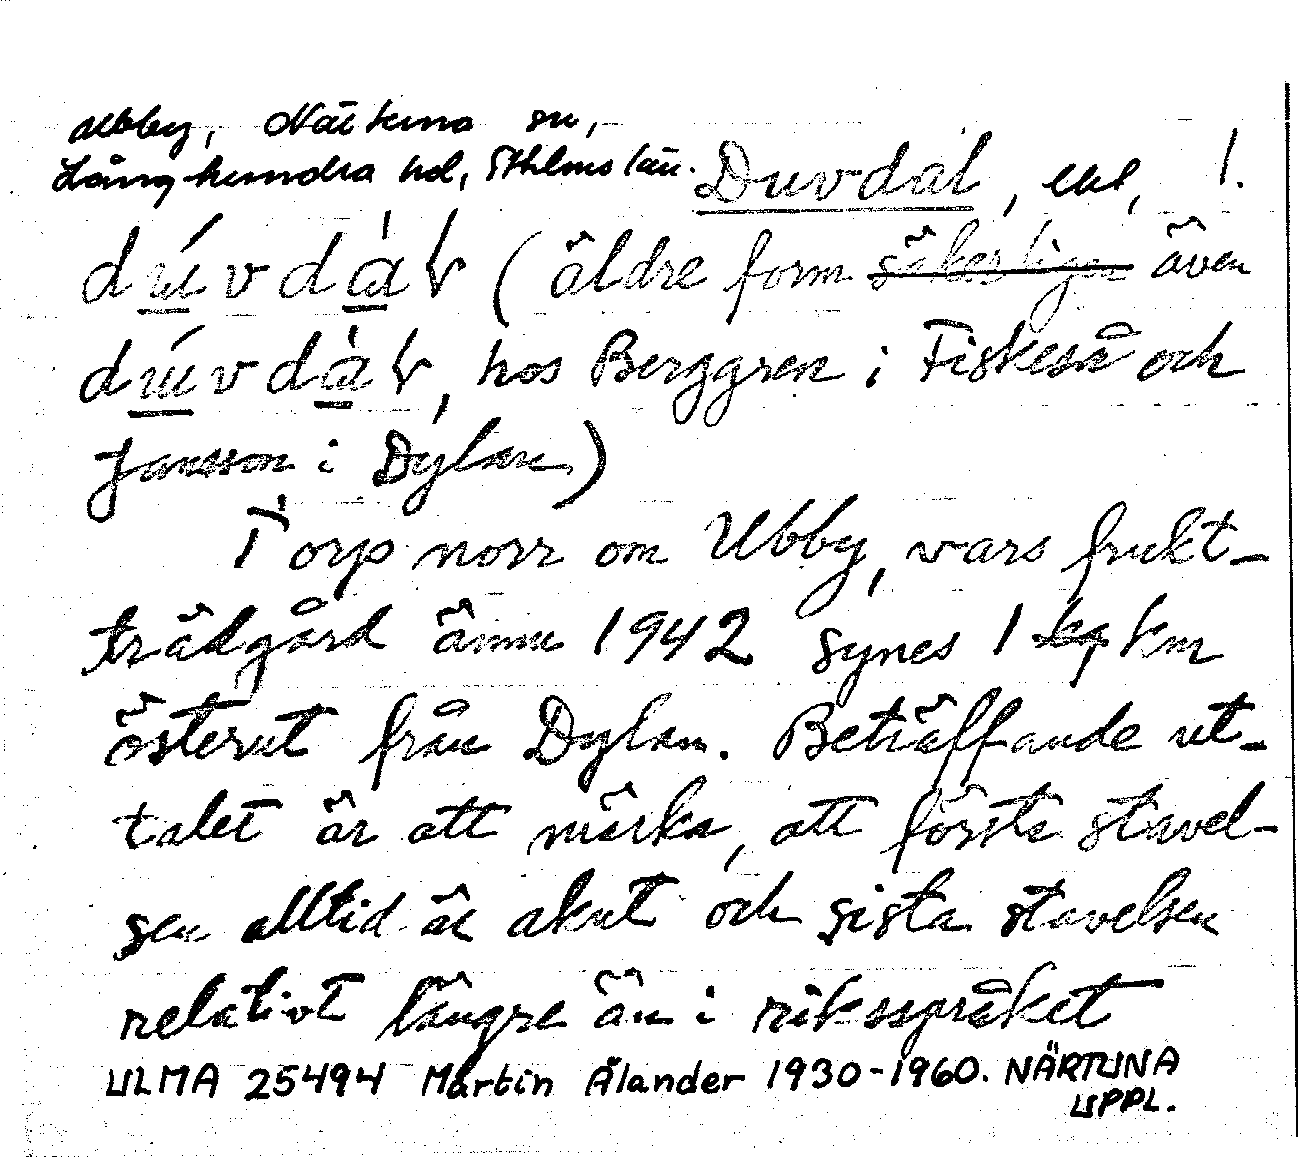 Ubby, Närtuna sn,
Långhundra hd, Sthlms län.
Duvdal, ebl, 1.
dúvdàl (äldre form säkerligen även
dúvdàl, hos Berggren i Fiskeså och
Jansson i Dylan)
Torp norr om Ubby, vars frukt-
trädgård ännu 1942 synes 1 kg km
österut från Dylan. Beträffande ut-
talet är att märka, att första stavel-
sen alltid är akut och sista stavelsen
relativt längre än i riksspråket
ULMA 25494 Martin Ålander 1930-1960. NÄRTUNA
UPPL.